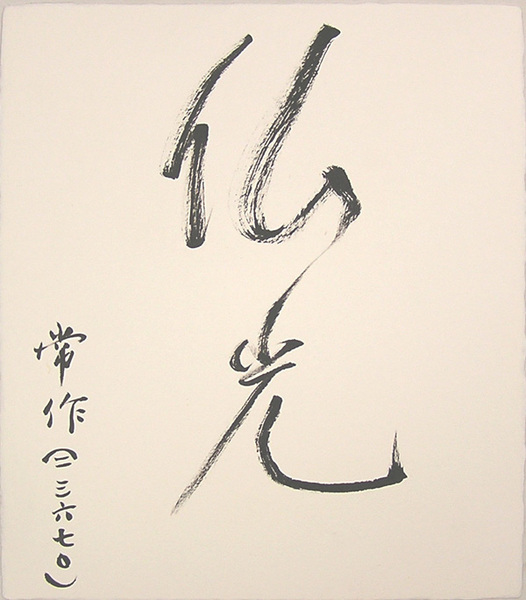 仏光
常作(二三六七〇)